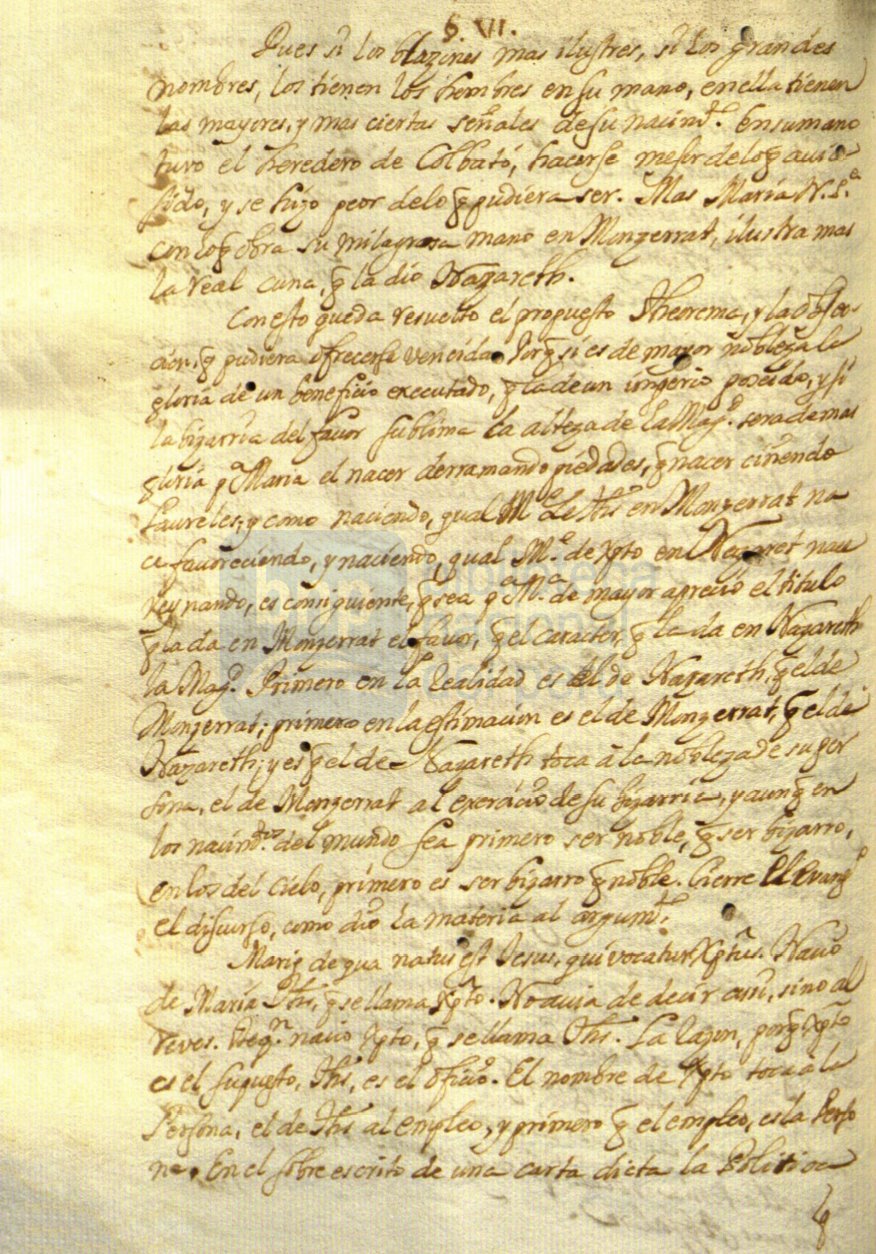 §. VII.
Pues si los blazones mas ilustres, si los grandes
nombres, los tienen los hombres en su mano, en ella tienen
las mayores, y mas ciertas señales de su nacimto. En su mano
tuvo el heredero de Colbató, hacerse mejor de lo q̃ avia
sido, y se hizo peor de lo q̃ pudiera ser. Mas Maria N. S.a
con lo q̃ obra su milagrosa mano en Monzerrat, ilustra mas
la real cuna, q̃ la dio Nazareth.
Con esto queda resuelto el propuesto Theorema, y la objec-
cion, q̃ pudiera ofrecerse vencida. Porq̃ si es de mayor nobleza la
gloria de un beneficio executado, q̃ la de un imperio poseido, y si
la bizarria del favor sublima la alteza de la Magd. sera de mas
gloria pa Maria el nacer derramando piedades, q̃ nacer ciñendo
Laureles; y como naciendo, qual Me de Jhs en Monzerrat na
ce favoreciendo, y naciendo, qual Me de Xpto en Nazaret nace
reynando, es consiguiente, q̃ sea pa Ma de mayor aprecio el titulo
q̃ la da en Monzerrat el favor, q̃ el caracter, q̃ la da en Nazareth
la Magd. Primero en la realidad es el de Nazareth, q̃ el de
Monzerrat; primero en la estimacion es el de Monzerrat, q̃ el de
Nazareth; y es q̃ el de Nazareth toca â la nobleza de su per
sona, el de Monzerrat al exercicio de su bizarria, y aunq̃ en
los nacimtos del mundo sea primero ser noble, q̃ ser bizarro,
en los del Cielo, primero es ser bizarro q̃ noble. Cierre el Evango
el discurso, como dio la materia al argumto.
Mariæ de qua natus est Jesus, qui vocatur Xptus. Nacio
de Maria Jhs, q̃ se llama Xpto. No avia de decir assi, sino al
reves. De qn nacio Xpto, q̃ se llama Jhs. La razon, porq̃ Xpto
es el supuesto, Jhs, es el oficio. El nombre de Xpto toca â la
Persona, el de Jhs al empleo, y primero q̃ el empleo, es la Perso
na. En el sobreescrito de una carta dicta la Politica
q̃
biblioteca
nacional
del perú